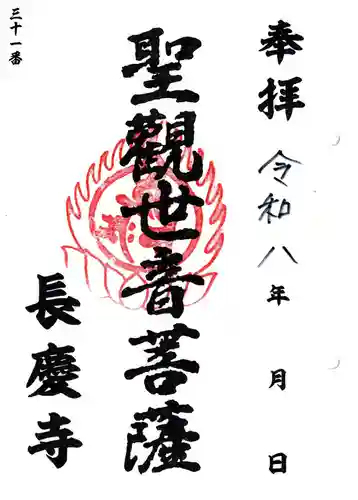 奉拝 令和八年 月 日
聖觀世音菩薩
長慶寺
三十一番